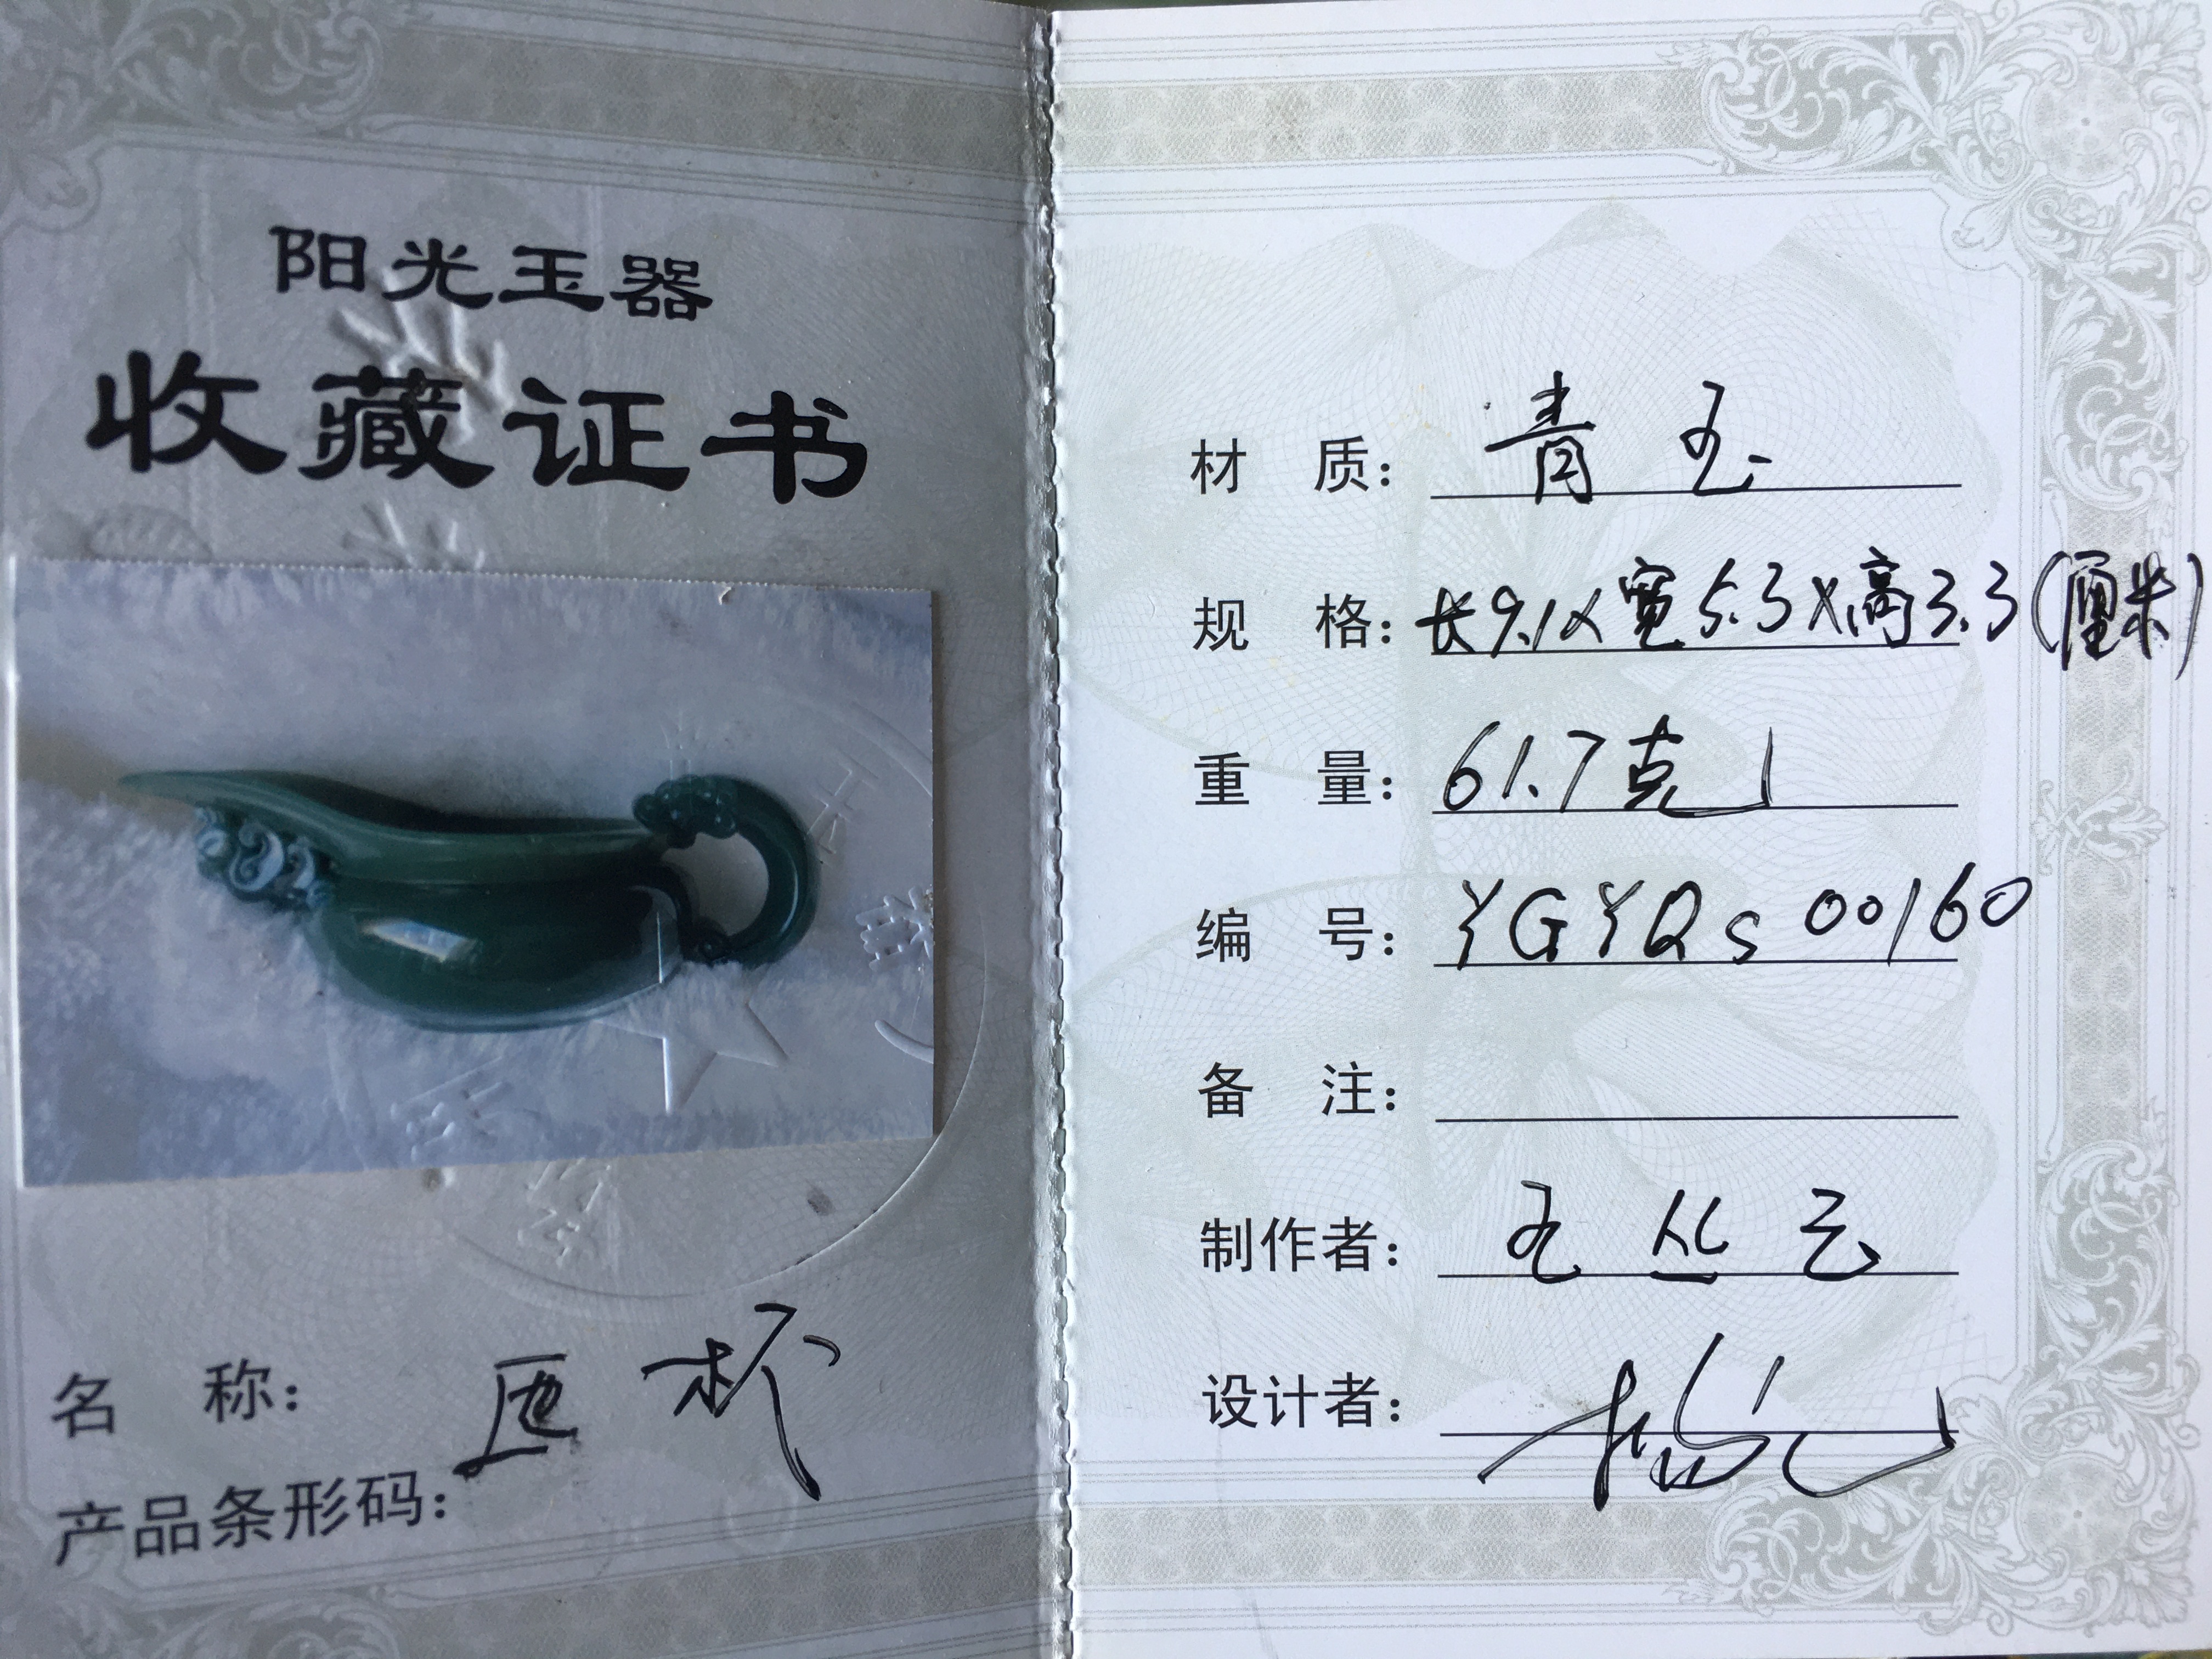 阳光玉器
收藏证书
名 称：匜杯
产品条形码：
材 质：青玉
规 格：长9.1X宽5.3X高3.3(厘米)
重 量：61.7克
编 号：YGYQS00160
备 注：
制作者：王丛云
设计者：